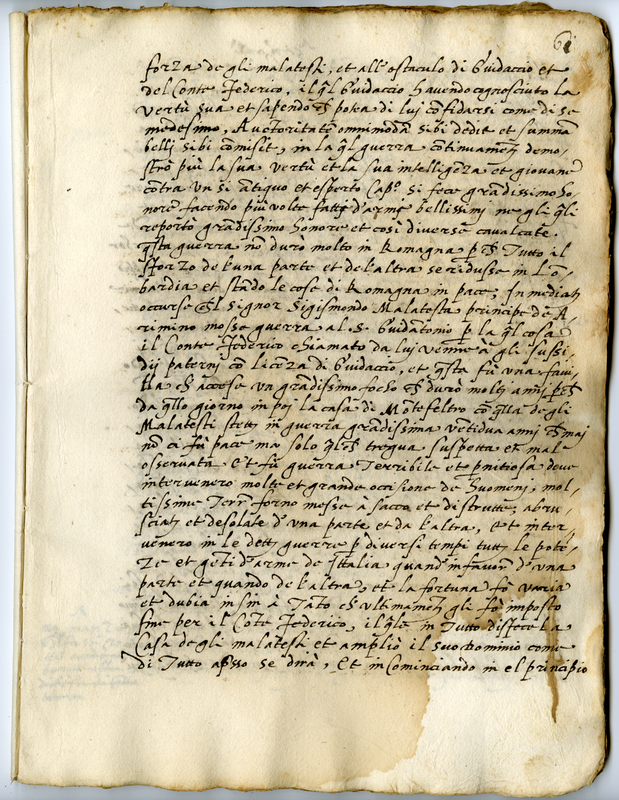 6i
forza de gli malatesti, et all'ostaculo di Guidaccio et
del Conte Federico, il ql Guidaccio havendo cagnosciuto la
vertù sua et sapendo ch potea di lui confidarsi come di se
medesimo, Auctoritatē omnimodā sibi dedit et summā
belli sibi comisit, in la ql guerra cōtinuamēti demo-
strò più la sua vertù et la sua intelligēza et giovane
cōtra un si ātiquo et esperto Capº. si fece grādissimo ho-
norē facendo più volte fatti d'arme bellissimi ne gli qli
reportò grādissimo honore et così diverse cavalcate.
qsta guerra nō durò molto in Romagna p ch Tutto il
sforzo de l'una parte et de l'altra se ridusse in Lō-
bardia et stādo le cose di Romagna in pace, In mediati
occurse chl signor Sigismondo Malatesta principe de A-
rimino mosse guerra al. S. Guidātonio p la ql cosa
il Conte Federico chiamato da lui venne à gli sussi-
dij paterni cō licēza di Guidaccio, et qsta fù una favi-
lla ch accese un grādissimo focho ch durò molti anni, p ch
da qllo giorno in poi la casa di Mōtefeltro cō qlla de gli
Malatesti stetti in guerra grādissima vētidua anni ch mai
nō ci fù pace ma solo qlch tregua, suspetta et male
osservata Et fù guerra Terribile et pnitiosa dove
intervenero molte et grande occisione de huomeni, mol-
tissime Terrē forno messe à sacco et distrutte, abru-
sciati et desolate d'una parte et da l'altra, Et inter-
vēnero in le detti guerre p diversi tempi tutti le potē-
ze et gēti d'arme de Italia quando in favorē d'una
parte et quando de l'altra, et la fortuna fù varia
et dubia insin à Tāto ch ultimamēti gli fù imposto
fine per il Cōte Federico, il qle in Tutto disfece la
Casa de gli malatesti et ampliò il suo Dominio come
di Tutto apsso se dirà, Et in Cominciando in el principio